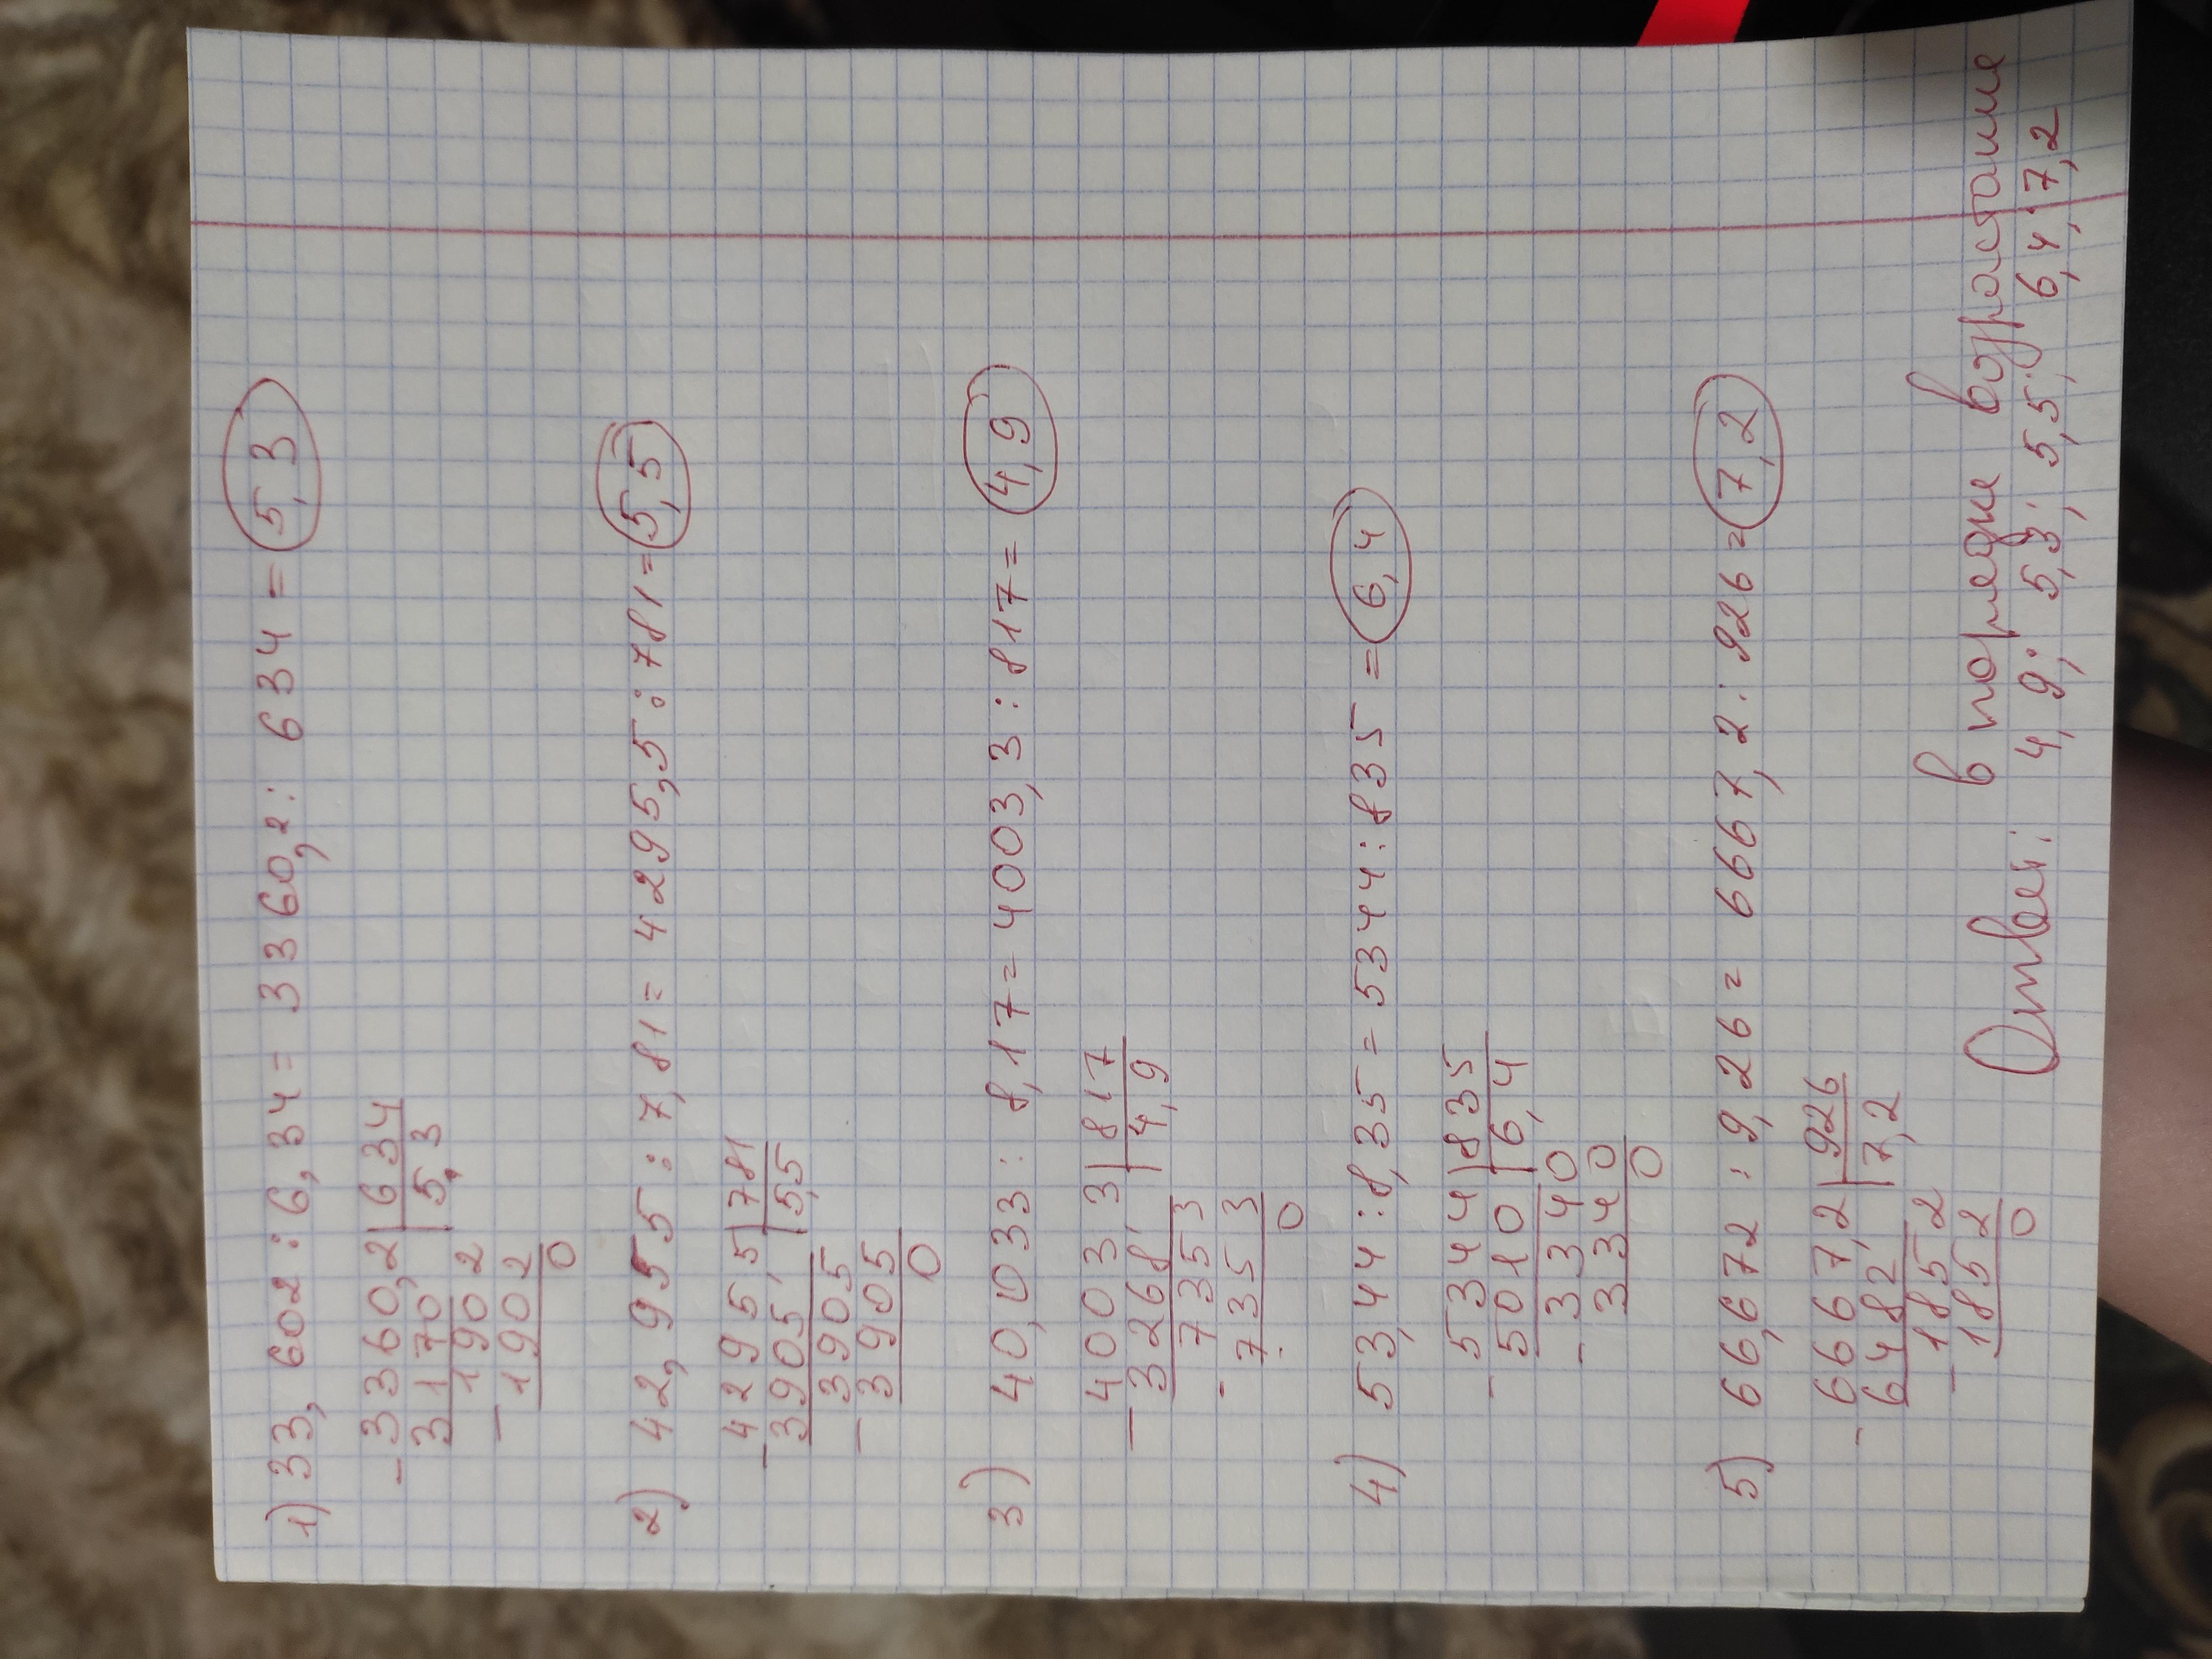 1) 33,602 : 6,34 = 3360,2 : 634 = 5,3
- 3360,2 | 634
3170 | 5,3
1902
- 1902
0
2) 42,955 : 7,81 = 4295,5 : 781 = 5,5
- 4295,5 | 781
3905 | 5,5
3905
- 3905
0
3) 40,033 : 8,17 = 4003,3 : 817 = 4,9
- 4003,3 | 817
3268 | 4,9
7353
- 7353
0
4) 53,44 : 8,35 = 5344 : 835 = 6,4
- 5344 | 835
5010 | 6,4
- 3340
3340
0
5) 66,672 : 9,26 = 6667,2 : 926 = 7,2
- 6667,2 | 926
6482 | 7,2
- 1852
1852
0
в порядке возростание
Ответ: 4,9; 5,3; 5,5; 6,4; 7,2